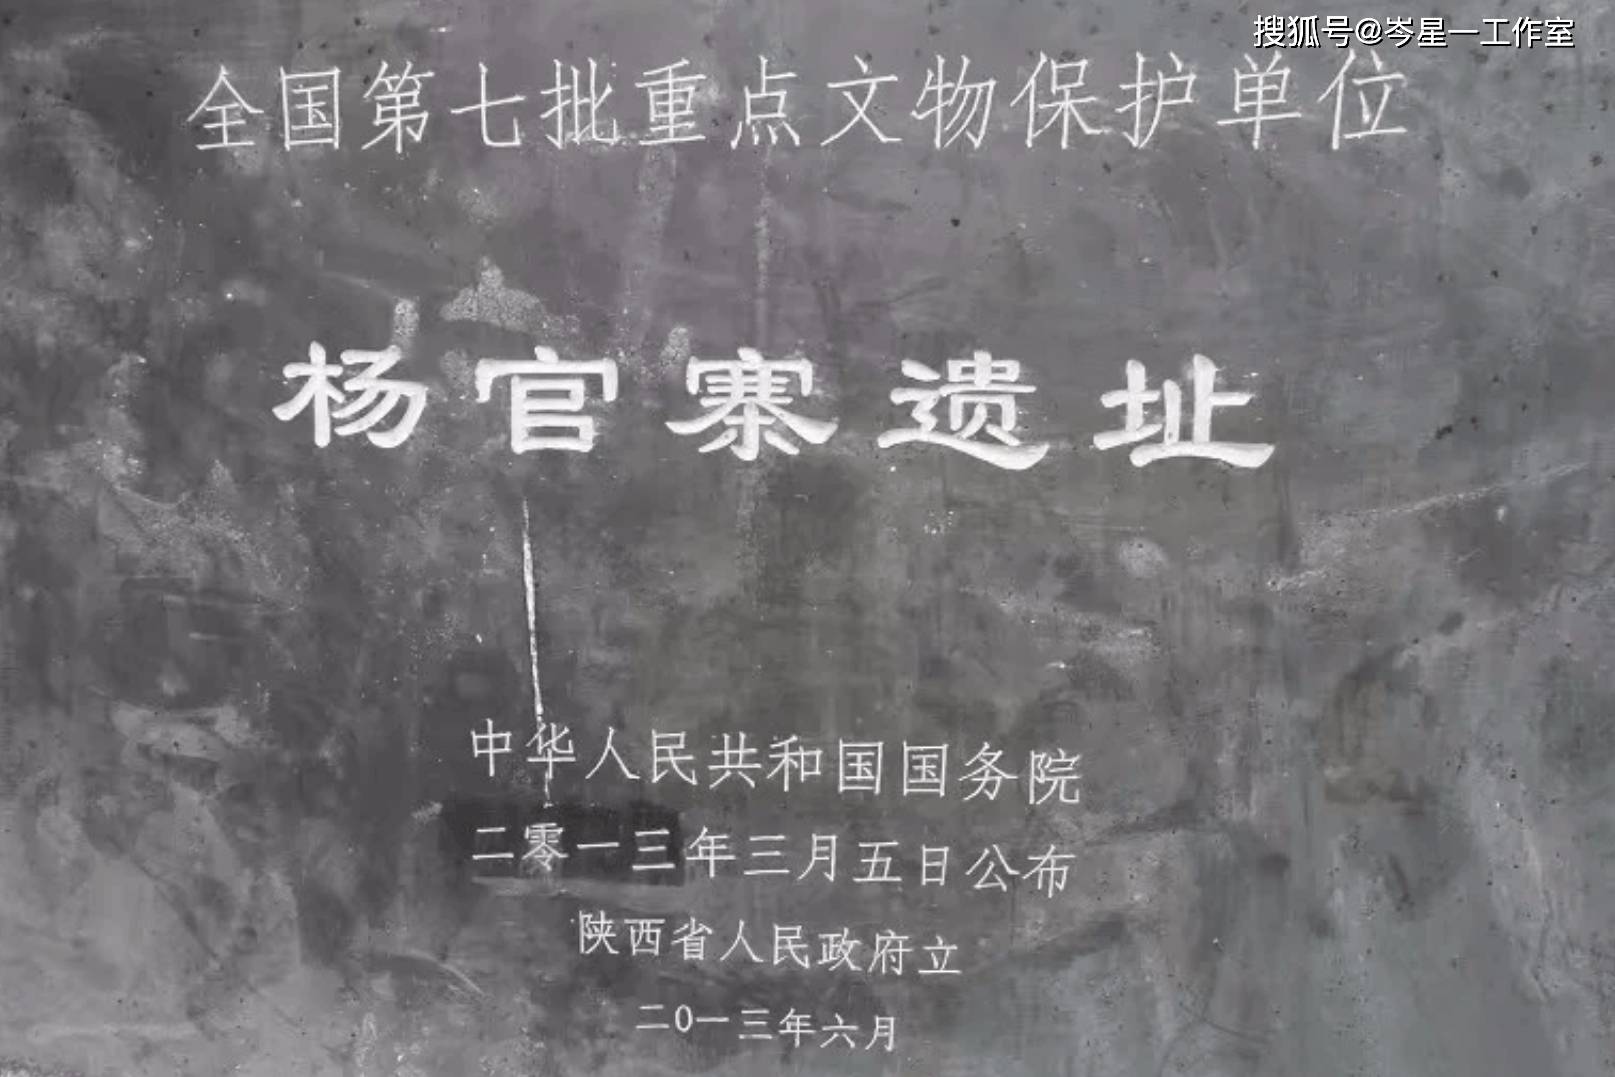 搜狐号@岑星一工作室
全国第七批重点文物保护单位
杨官寨遗址
中华人民共和国国务院
二零一三年三月五日公布
陕西省人民政府立
二0一三年六月